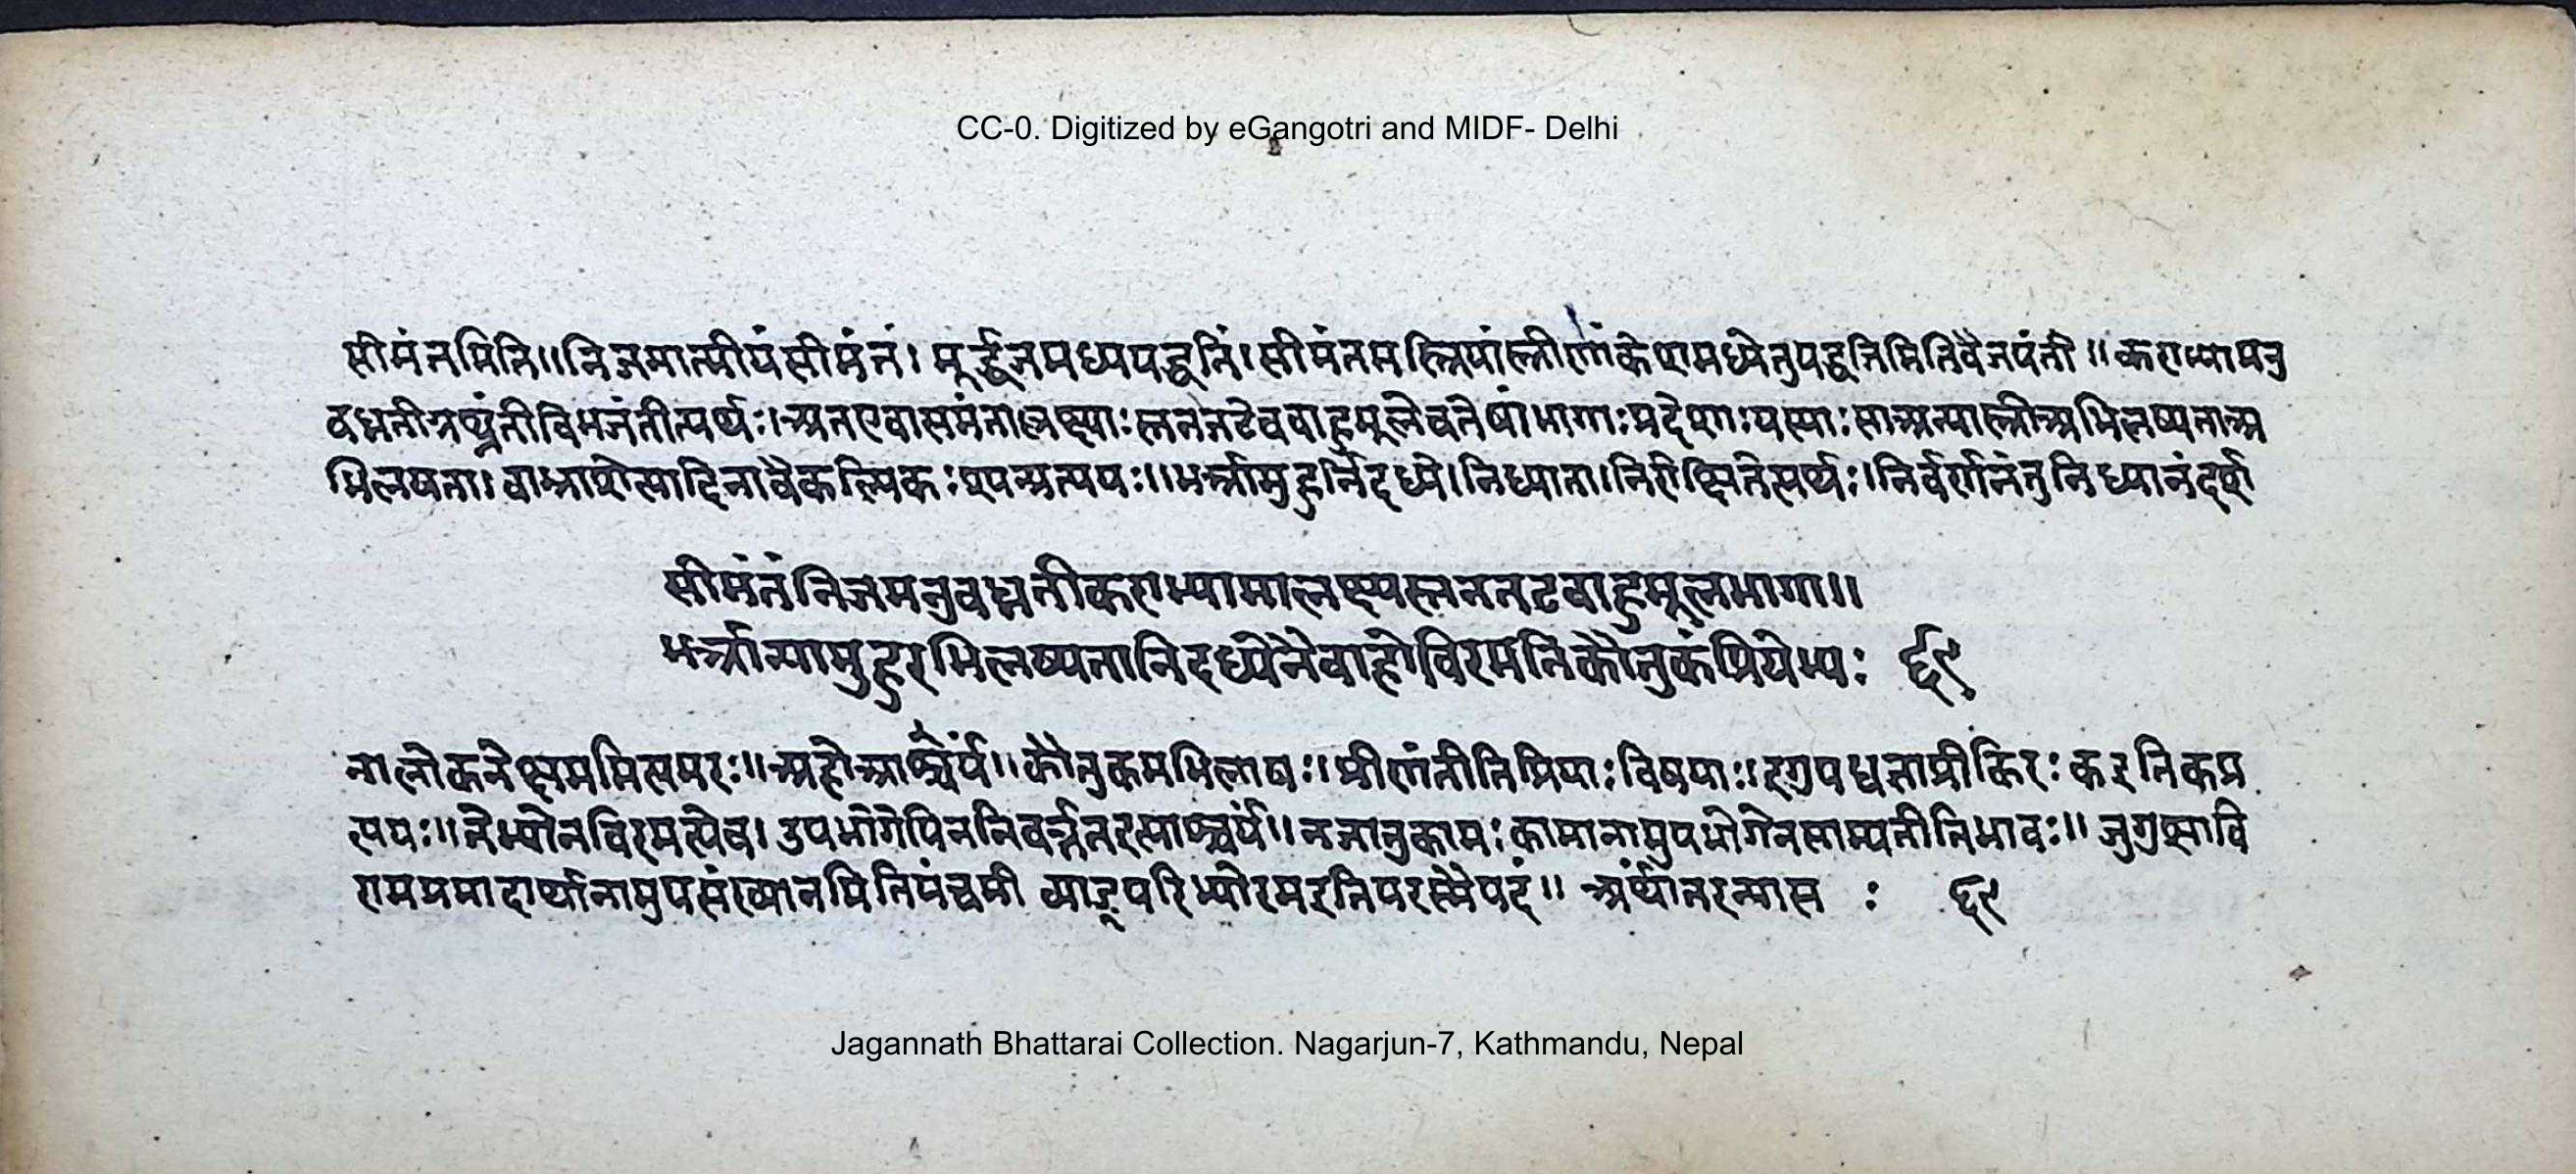 CC-0. Digitized by eGangotri and MIDF- Delhi
सीमंतमिति॥निजमात्मीयंसीमंतं। मूर्द्धजमध्यपद्धतिं।सीमंतमस्त्रियांस्त्रीणांकेशमध्येतुपद्धतिमितिवैजयंती॥कराभ्यामनु
वध्नतीग्रथ्नंतीविभजंतीत्यर्थः।अतएवासमंताल्लक्ष्याःस्तनतटेबबाहुमूलेचतेषांभागाःप्रदेशाःयस्याःसाअन्यास्त्रीअभिलष्यताअ
भिलषता।वाभ्राशेत्यादिनावैकल्पिकःश्यन्प्रत्ययः॥भर्त्रामुहुर्निदध्ये।निध्याता।निरीक्षितेत्यर्थः।निर्वर्णनंतुनिध्यानंदर्श
सीमंतंनिजमनुवध्नतीकराभ्यामालक्ष्यस्तनतटबाहुमूलभागा॥
भर्त्रान्यामुहुरभिलष्यतानिदध्येनैवाहोविरमतिकौतुकंप्रियेभ्यः ६९
नालोकनेक्षममित्यमरः॥अहोआश्चर्यं॥कौतुकमभिलाषः॥प्रीणंतीतिप्रियाःविषयाः॥इगुपधज्ञाप्रीकिरःकइतिकप्र
त्ययः॥तेभ्योनविरमत्येव।उपभोगेपिननिवर्त्ततइत्याश्चर्यं॥नजातुकामःकामानामुपभोगेनसाम्यतीतिभावः॥जुगुप्सावि
रामप्रमादार्थानामुपसंख्यानमितिपंचमी व्याङ्परिभ्योरमइतिपरस्मैपदं॥ अर्थांतरन्यास : ६९
Jagannath Bhattarai Collection. Nagarjun-7, Kathmandu, Nepal